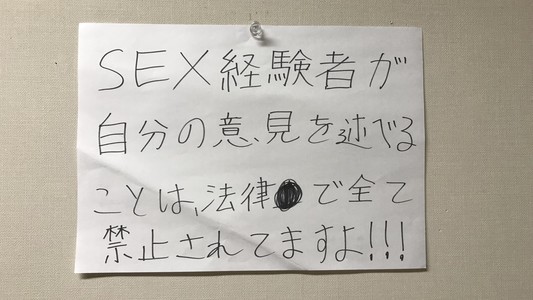 SEX経験者が
自分の意見を述べる
ことは、法律で全て
禁止されてますよ!!!